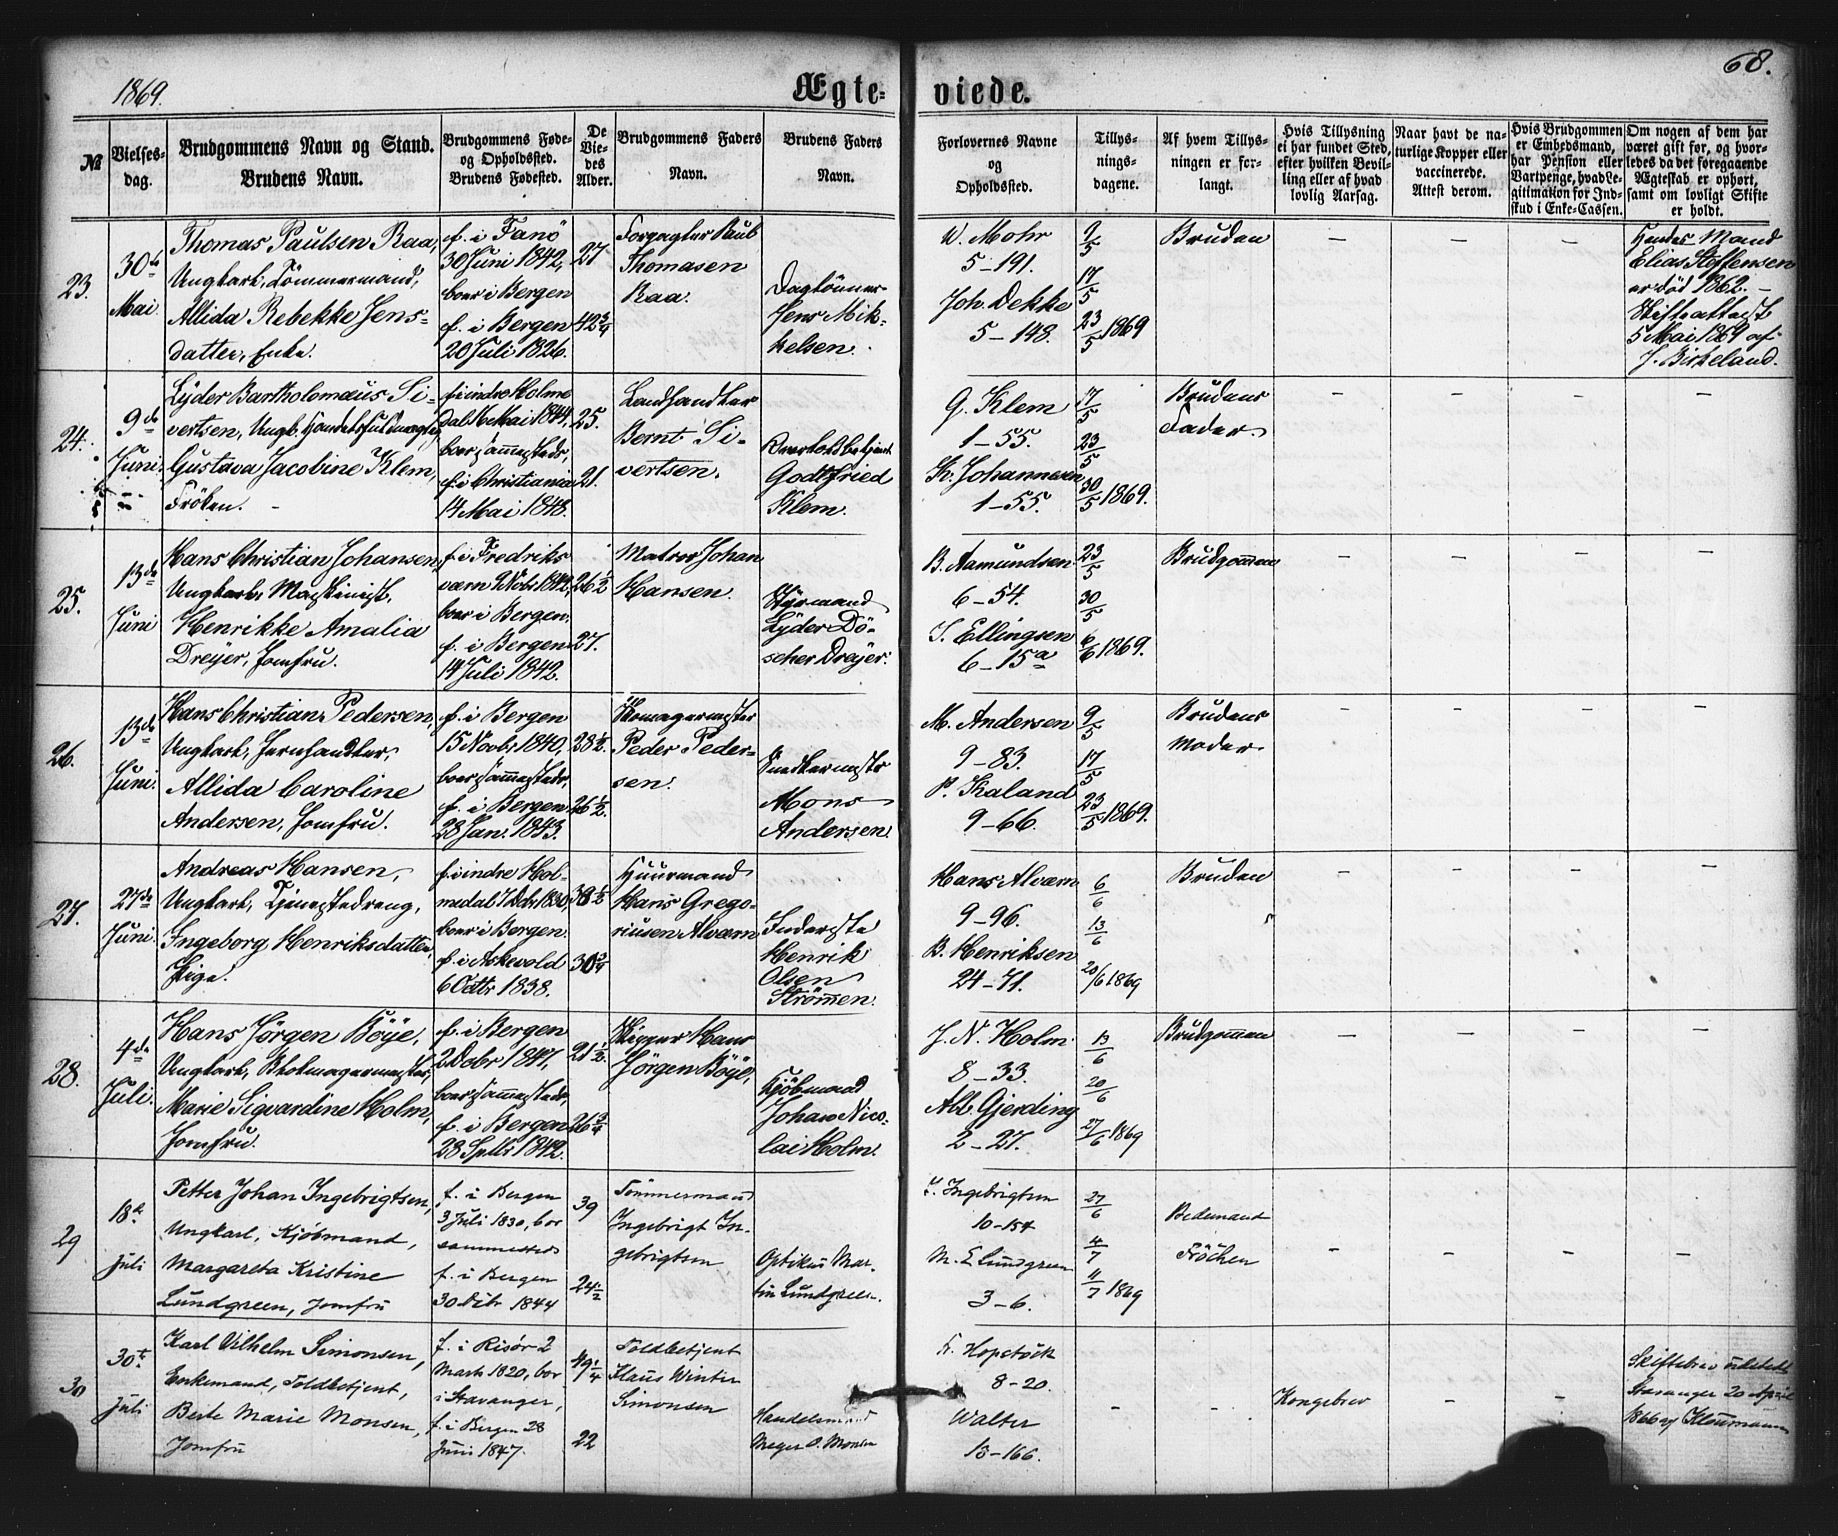 1869.
Ægte-
viede.
68.
№
Vielses-
dag.
Brudgommens Navn og Stand.
Brudens Navn.
Brudgommens Føde-
og Opholdssted.
Brudens Fødested.
De
Vie-
des
Alder.
Brudgommens Faders
Navn.
Brudens Faders
Navn.
Forlovernes Navne
og
Opholdssted.
Tillys-
nings-
dagene.
Af hvem Tillys-
ningen er for-
langt.
Hvis Tillysning
ei har fundet Sted,
efter hvilken Bevil-
ling eller af hvad
lovlig Aarsag.
Naar havt de na-
turlige Kopper eller
vaccinerede.
Attest derom.
Hvis Brudgommen
er Embedsmand,
har Pension eller
Vartpenge, hvad Le-
gitimation for Ind-
skud i Enke-Cassen.
Om nogen af dem har
været gift før, og hvor-
ledes da det foregaaende
Ægteskab er ophørt,
samt om lovligt Skifte
er holdt.
23.
30te
Mai.
Thomas Paulsen Raa,
Ungkarl, Tömmermand,
Allida Rebekke Jens-
datter, Enke.
f. i Fanö
30 Juni 1842,
boer i Bergen
f. i Bergen
20 Juli 1826.
27
42 3/4
Forpagter Paul
Thomasen
Raa.
Daglönner
Jens Mik-
kelsen.
W. Mohr
5-191.
Joh. Dekke
5-148.
9/5
17/5
23/5 1869
Bruden
—
—
—
Hendes Mand
Elias Steffensen
er död 1862. —
Skifteattest
5 Mai 1869 af
J. Birkeland.
24.
9de
Juni.
Lyder Bartholomæus Si-
vertsen, Ungk. Handelsfuldmægtig,
Gustava Jacobine Klem,
Fröken. -
f. i indre Holme
dal 6 Mai 1844,
boer sammesteds,
f. i Christiania
14 Mai 1848.
25.
21.
Landhandler
Bernt Si-
vertsen.
Overtoldbetjent
Godtfried
Klem.
G. Klem
1-55.
Th. Johannesen
1-55.
17/5
23/5
30/5 1869.
Brudens
Fader.
—
—
—
—
25.
13de
Juni
Hans Christian Johansen,
Ungkarl, Maskinist,
Henrikke Amalia
Dreyer, Jomfru.
f. i Fredriks
værn 2 Novbr 1842,
boer i Bergen,
f. i Bergen
14 Juli 1842.
26 1/2
27.
Matros Johan
Hansen.
Styrmand
Lyder Dö-
scher Dreyer.
B. Aamundsen
6-54.
S. Ellingsen
6-15a
23/5
30/5
6/6 1869.
Brudgommen
—
—
—
—
26.
13de
Juni.
Hans Christian Pedersen,
Ungkarl, Jernhandler,
Allida Caroline
Andersen, Jomfru.
f. i Bergen
15 Novbr 1840,
boer sammesteds,
f. i Bergen
28 Jan. 1843.
28 1/2.
26 1/2.
Skomagermester
Peder Peder-
sen.
Snedkermester
Mons
Andersen.
M. Andersen
9-83.
P. Kaland
9-66.
9/5
17/5
23/5 1869.
Brudens
Moder.
—
—
—
—
27.
27de
Juni.
Andreas Hansen,
Ungkarl, Tjenestedreng,
Ingeborg Henriksdatter,
Pige.
f. i indre Hol-
medal 7 Dcbr 1830,
boer i Bergen.
f. i Askevold
6 Octbr 1838.
38 1/2
30 3/4
Huusmand
Hans Grego-
riusen Alværn
Inderste
Henrik
Olsen
Strömmen.
Hans Alværn
9-96.
B. Henriksen
24-71.
6/6
13/6
20/6 1869
Bruden
—
—
—
—
28.
4de
Juli.
Hans Jörgen Böye,
Ungkarl, Blokmagermester,
Marie Sigvardine Holm,
Jomfru.
f. i Bergen
2 Dcbr 1847,
boer sammesteds,
f. i Bergen
28 Septbr 1842.
21 1/2.
26 3/4
Skipper Hans
Jörgen Böye,
Kjöbmand
Johan Nico-
lai Holm.
J. N. Holm
8-33.
Alb. Gjerding
2-27.
13/6
20/6
27/6 1869
Brudgommen
—
—
—
—
29
18de
Juli
Petter Johan Ingebrigtsen,
Ungkarl, Kjöbmand,
Margareta Kristine
Lundgreen, Jomfru
f. i Bergen
3 Juli 1830, bor
sammesteds
f. i Bergen
30 Dcbr 1844
39
24 1/2
Tömmermand
Ingebrigt In-
gebrigtsen
Optikus Mar-
tin Lundgreen.
Ingebrigtsen
10-154
M. E Lundgreen
3-6.
27/6
4/7
11/7 1869
Bedemand
Fröchen
—
—
—
—
30
30te
Juli
Karl Vilhelm Simonsen,
Enkemand, Toldbetjent,
Berte Marie Monsen,
Jomfru
f. i Risör 2
Marts 1820, bor
i Stavanger,
f. i Bergen 28
Juni 1847.
49 1/4
22
Toldbetjent
Klaus Winter
Simonsen
Handelsmand
Meyer O. Monsen
Hopstock
8-20.
Walter
13-166.
—
—
Kongebrev
—
—
Skiftebrev udstedt
Stavanger 20 April
1866 af Kloumann